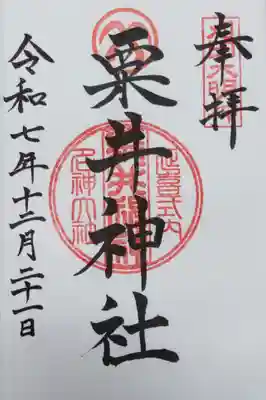 奉拝
粟井神社
延喜式内
名神大社
令和七年十二月二十一日